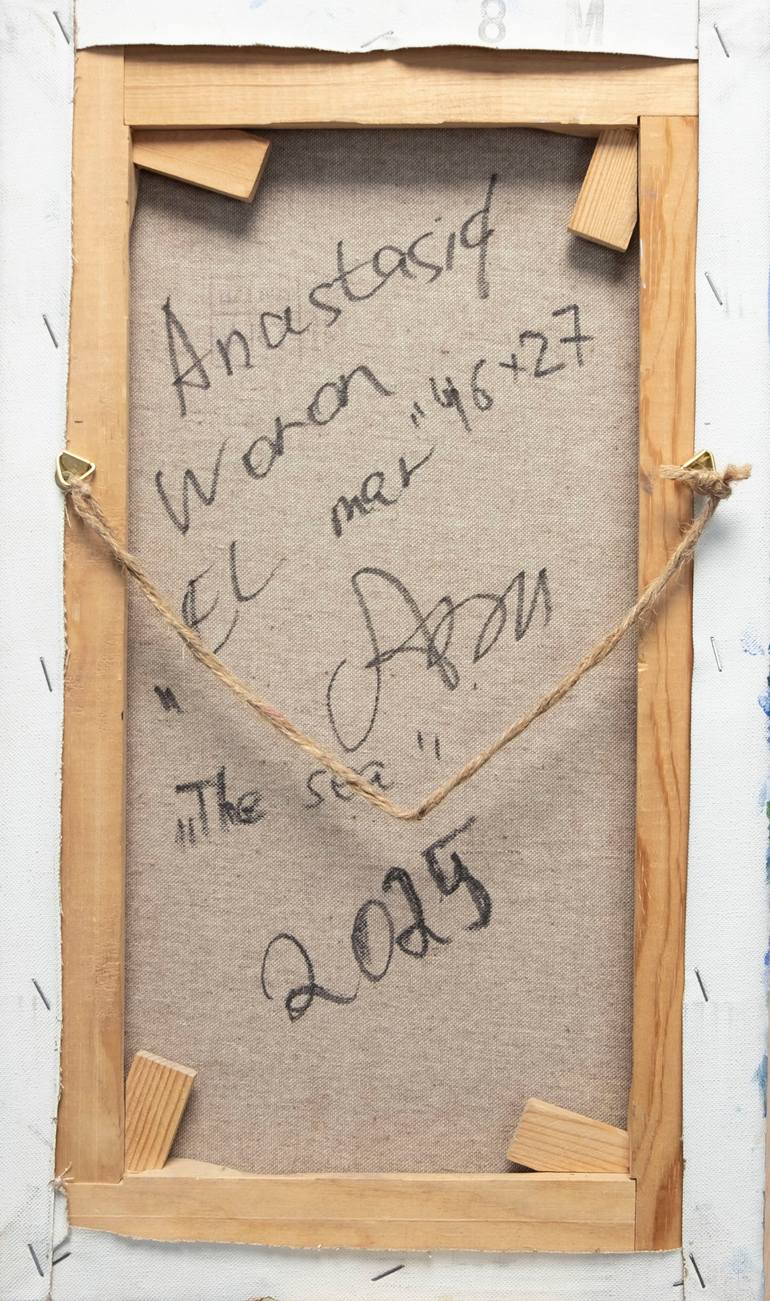 8 M
Anastasia
Woron
"46×27
EL mar"
"
„The sea"
2025